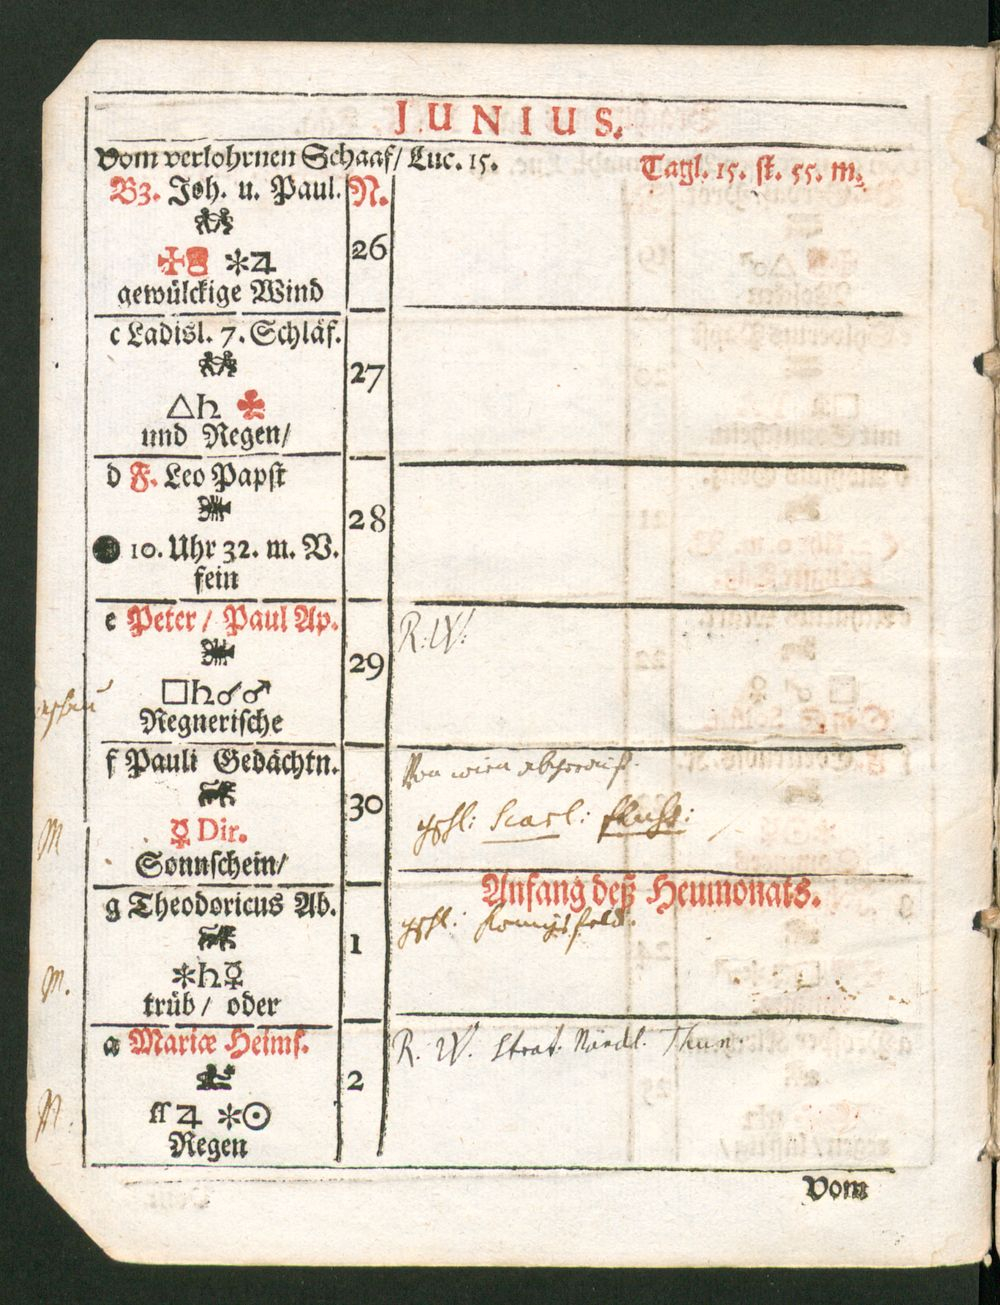 JUNIUS.
Vom verlohrnen Schaaf/ Luc. 15.
Tagl. 15. st. 55. m.
Bz. Joh. u. Paul. N.
26
✠ ✻♃
gewülckige Wind
c Ladisl. 7. Schläf.
27
△♄ ♣
und Regen/
d F. Leo Papst
28
● 10. Uhr 32. m. V.
fein
e Peter / Paul Ap.
29
R. W.
□♄☌♂
Regnerische
f Pauli Gedächtn.
30
Von wien
☿ Dir.
M
Sonnschein/
Anfang deß Heumonats.
g Theodoricus Ab.
1
✻♄☿
M.
trüb/ oder
a Mariæ Heims.
2
R. W. Strat. Thun.
♃ ✻☉
Regen
Vom